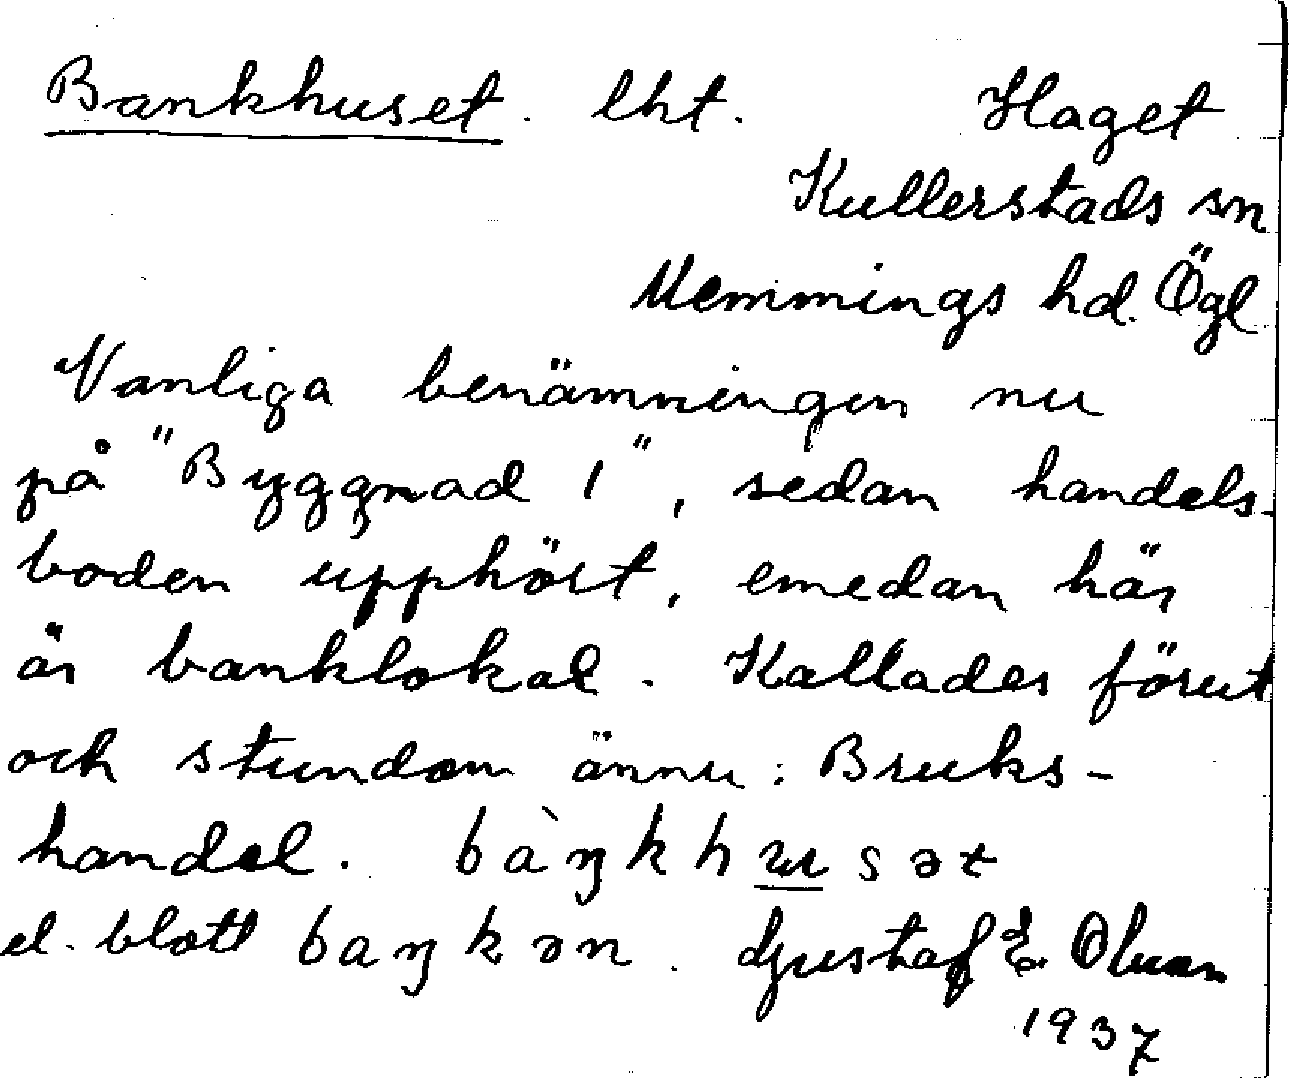 Bankhuset. lht. Haget
Kullerstads sn
Memmings hd. Ögl
Vanliga benämningen nu
på "Byggnad 1", sedan handels-
boden upphört, emedan här
är banklokal. Kallades förut
och stundom ännu: Bruks-
handel. bàŋkhusət
el. blott baŋkən. Gustaf E. Olsson
1937